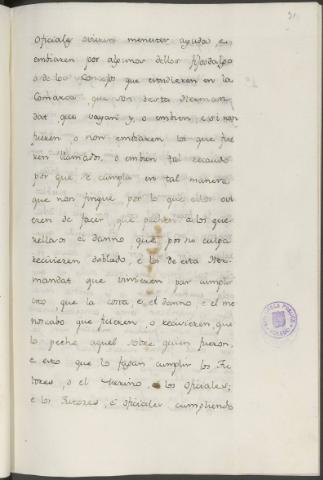 oficiales ovieren menester ayuda e
embiaren por algunos dellos fijosdalgo
o de los Concejos que estudieren en la
Comarca, que son desta Herman-
dat, que vayan y, o embien, e si non
fueren, o non embiaren los que fue
ren llamados, o embien tal recaudo
por que se cumpla en tal manera
que non finque, por lo que ellos ovi
eren de facer, que pechen a los que-
rellosos el danno que por su culpa
recivieren doblado, e los de esta Her-
mandat que vinieren par cumplir
esto que la costa, e el danno, e el me
noscabo que ficieren, o recivieren, que
lo peche aquel sobre quien fueron,
e esto que lo fagan cumplir los Tu-
tores, o el Merino, e los oficiales;
e los Tutores, e oficiales cumpliendo